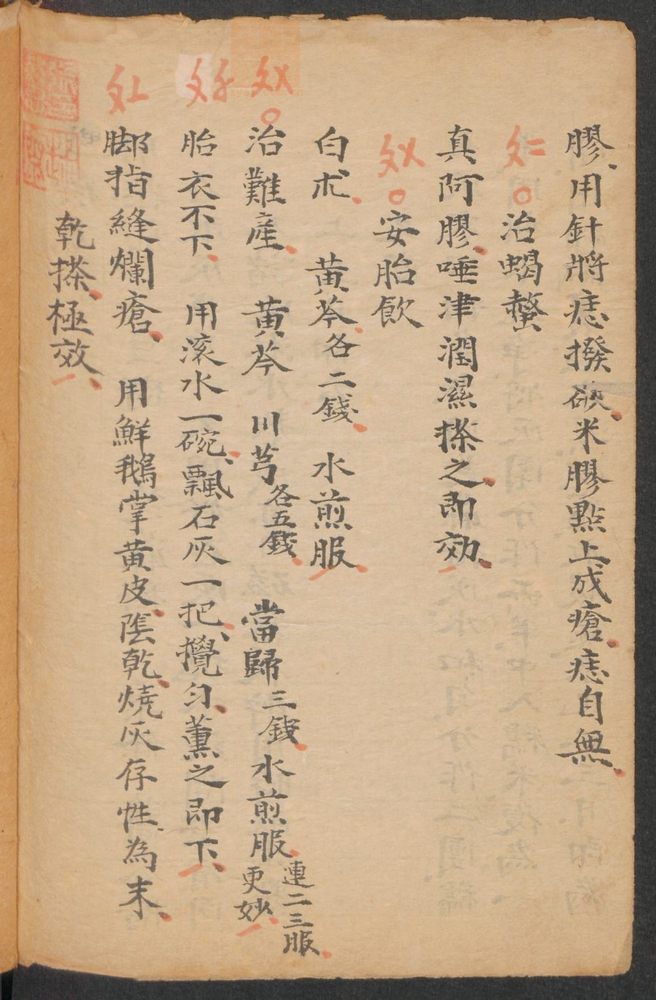 膠、用針將痣撥破、米膠點上成瘡、痣自無、
治蝎螫
真阿膠、唾津潤濕搽之、即効、
安胎飲
白朮、黄芩、各二錢、水煎服、
治難產、黄芩 川芎各五錢、當歸三錢、水煎服、連二三服更妙、
胎衣不下、用滚水一碗、飄石灰一把、攪匀、薰之即下、
脚指縫爛瘡、用鮮鵝掌黄皮、陰乾、燒灰存性、為末、
乾搽、極效、